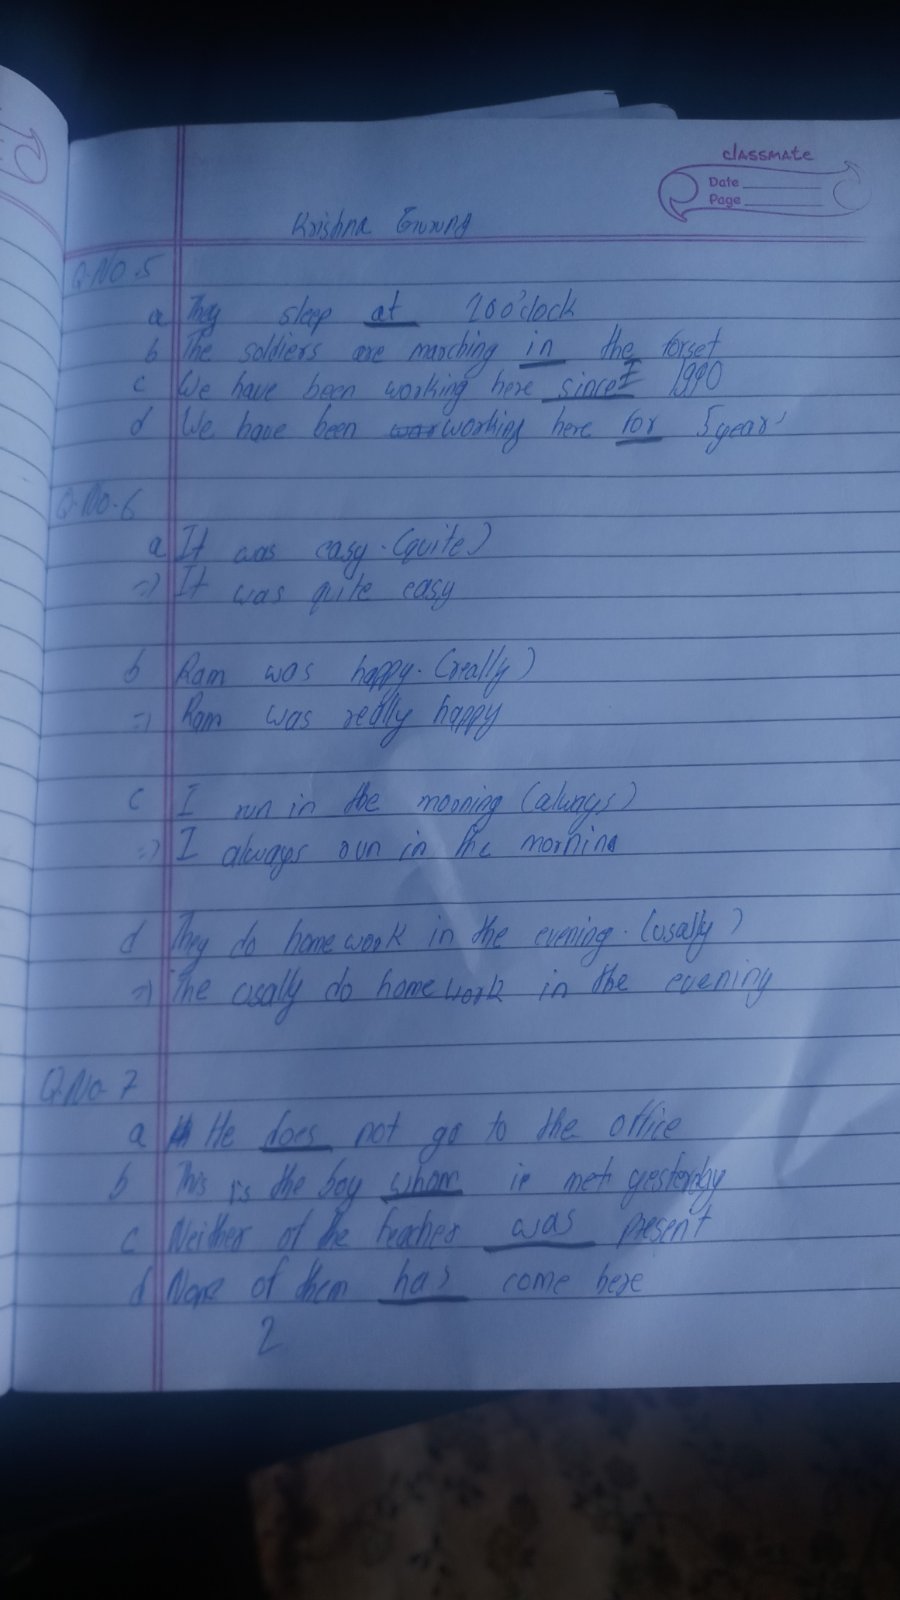 classmate
Date
Page
Krishna Gurung
Q.No.5
a They sleep at 10 o'clock
b The soldiers are marching in the forset
c We have been working here since 1990
d We have been working here for 5 year
Q.No.6
a It was easy. (quite)
=> It was quite easy
b Ram was happy. (really)
=> Ram was really happy
c I run in the morning (always)
=> I always run in the morning
d They do home work in the evening. (usally)
=> The usally do home work in the evening
Q.No.7
a He does not go to the office
b This is the boy whom met yesterday
c Neither of the teacher was present
d None of them has come here
2